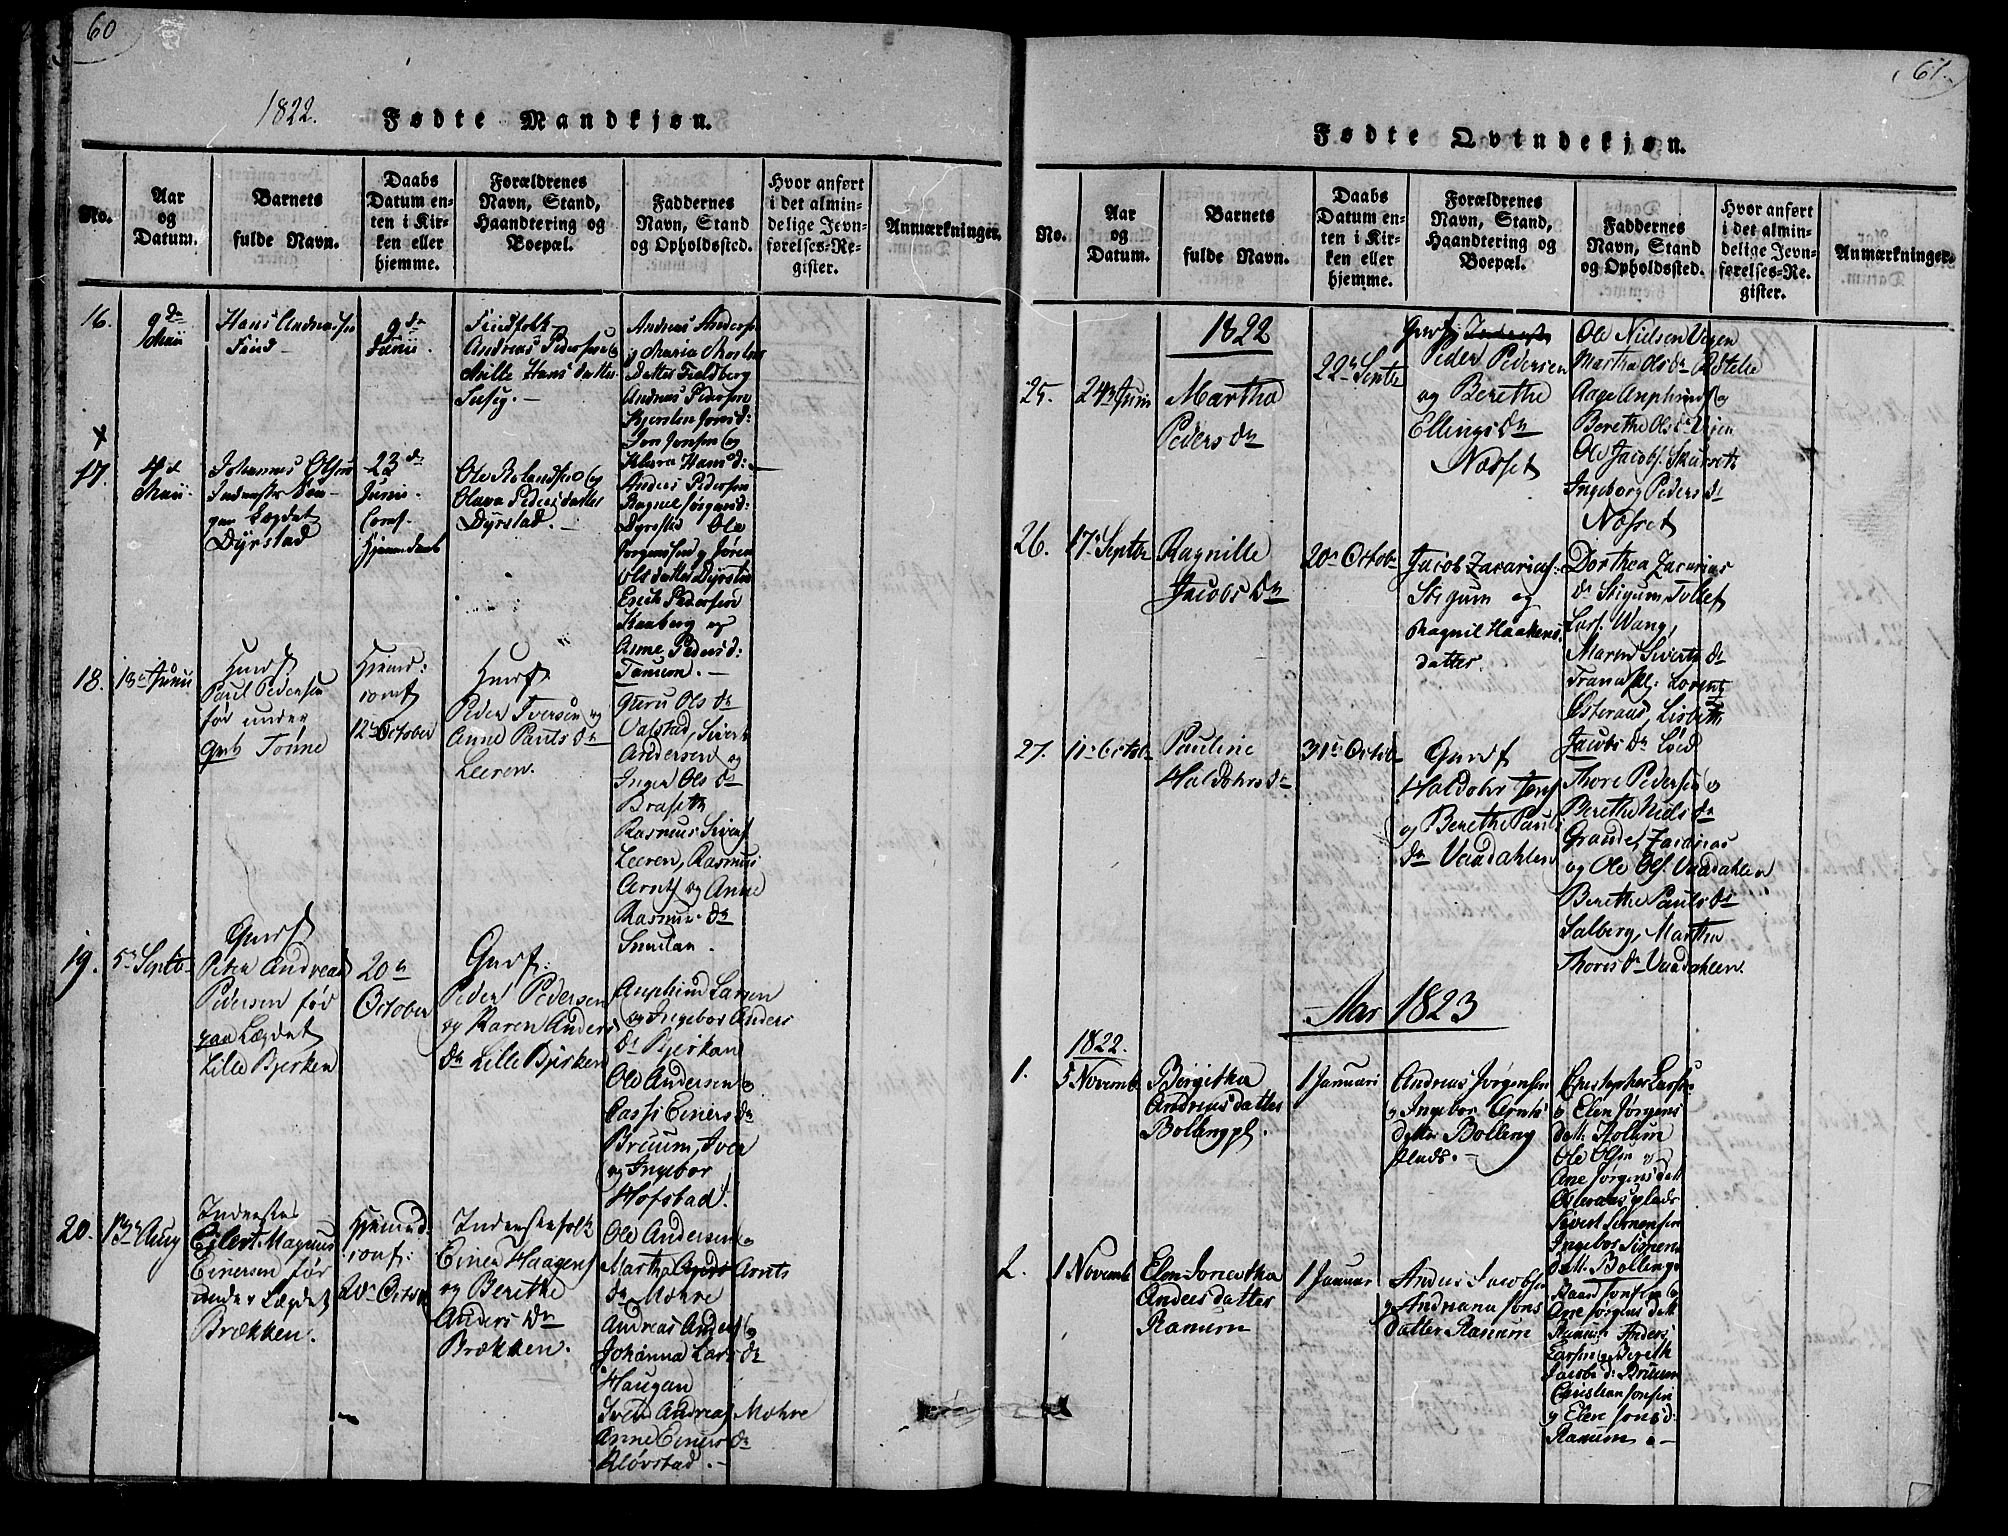 60
1822.
Fødte Mandkjøn.
No.
Aar
og
Datum.
Barnets
fulde Navn.
Daabs
Datum en-
ten i Kir-
ken eller
hjemme.
Forældrenes
Navn, Stand,
Haandtering og
Boepæl.
Faddernes
Navn, Stand
og Opholdssted.
Hvor anført
i det almin-
delige Jevn-
førelses-Re-
gister.
Anmærkninger.
16.
9de
Maii
Hans Andreasen
Find
9de
Junii.
Findfolk
Andreas Pedersen og
Hans datter
Andreas Andersen
og Maria
datter Fieldberg
Andreas Pedersen
Kjersten Jonsd:
Jon Jonsen og
Klara Hansd:
17.
4de
Maii
Johannes Olsen
Dyrstad
23de
Junii.
Conf.
Hjemmedaab
Ole Rolandsen og
Olava Pedersdatter
Dyrstad.
Anders Pedersen
Dyrstad Ole
Jørgensen og Jøren
Olsdatter Dyrstad
Erick Pedersen
Kaaberg og
Anne Pedersd:
Tanum.
18.
13de Junii
Huusf
Paul Pedersen
fød under
Tønne
Hjemd:
conf
12te October
Huusf
Peder Iversen og
Anne Paulsdr
Leeren.
Guru Olsdr
Valstad, Sivert
Andersen og
Inger Olsdr
Braseth
Rasmus Sivers
Leeren, Rasmus
Arntz og Anne
Rasmusdr
19.
5te Septbr
Gaardf
Peter Andreas
Pedersen fød
paa Lægdet
Lille Bjerken
20de
October
Gaardf:
Peder Pedersen
og Karen Anders
dr Lille Bjerken
Arnphind Larsen
og Ingebor Anders
dr Bjerkan
Ole Andersen og
Einersdr
Bruum, Iver
og Ingebor
Hofstad.
20.
13de Aug
Inderster
Eilert Magnus
Einersen fød
under Lægdet
Brækken.
Hjemmed
conf:
20de Octobr
Inderstefolk
Einer Haagens
og Berethe
Andersdr
Brækken.
Ole Andersen og
Martha Arnts
dr Mohre
Andreas Anders og
Johanna Larsdr
Haugan
Sven Andreas Mohre
Anne Einersdr
Kløvstad.
61.
Fødte Qvindekjøn.
No.
Aar
og
Datum.
Barnets
fulde Navn.
Daabs
Datum en-
ten i Kir-
ken eller
hjemme.
Forældrenes
Navn, Stand,
Haandtering og
Boepæl.
Faddernes
Navn, Stand
og Opholdssted.
Hvor anført
i det almin-
delige Jevn-
førelses-Re-
gister.
Anmærkninger.
1822
25.
24de Juni
Martha
Pedersdr
22de Septbr
Peder Pedersen
og Berethe
Ellingsdr
Næsset
Ole Nielsen Vegen
Martha Olsdr
Aage Arnphinds og
Berethe Olsdr
Ole Jacobs. Skurseth
Ingeborg Pedersdr
Næsset
26.
17de Septbr
Ragnille
Jacobsdr
20de October
Jacob Zacarias:
Stigum og
Ragnil Haakens
datter.
Dorthea Zacarias
dr Stigum, Tollef
Lars. Wang,
Maren Siverts dr
Tranapl: Lorentz
Østeraas, Lisbeth
Jacobsdr Løed
27.
11te Octob
Pauline
Haldohrsdr
31te Octob
Gaardf
Haldohr Jens
og Berethe Pauls
dr Vaadahlen
Thore Pedersen og
Berethe Nielsdr
Grande, Zacarias
og Ole Ols. Vaadahlen
Berethe Paulsdr
Salberg, Martha
Thoresdr Vaadahlen.
Aar 1823
1822.
1.
5 Novemb.
Bergitha
Andreasdatter
Bollingpl.
1 Januari
Andreas Jørgensen
og Ingebor Arnts
datter Bolling
plads.
Christopher Larsen
og Elen Jørgens
datt. Holum
Ole Olsen og
Ane Jørgensdatt
Østeraasplads
Sivert Simensen
Ingebor Simens
datt. Bolling
2.
1 Novemb
Elen Jonetha
Andersdatter
Ranum
1 Januar
Anders Jacobsen
og Andriana Jons
datter Ranum
Baard Jonsen og
Ane Jørgensdatt
Ranum Anders
Larsen og Bereth
Jacobsd: Bruum
Christian Jonsen
og Elen Jonsd:
Ranum.